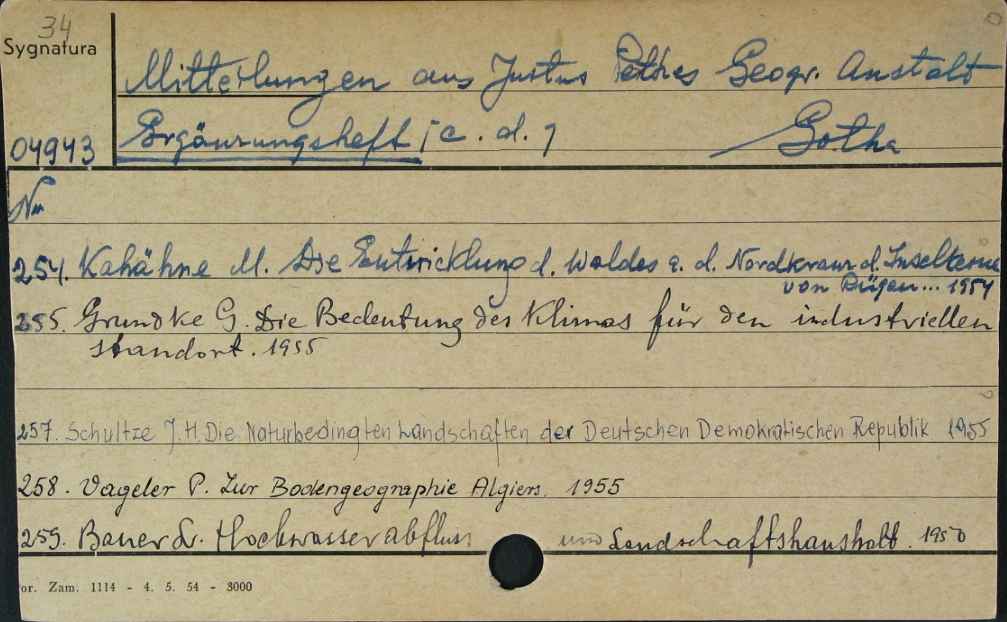 34
Sygnatura
Mitteilungen aus Justus Pethes Geogr. Anstalt
04943 Ergänzungsheft /c. d. / Gotha
Nr
254. Kahähne M. Die Entwicklung d. Waldes a. d. Nordkranz d. Inselkerne
von Rügen... 1954
255. Grundke G. Die Bedeutung des Klimas für den industriellen
standort. 1955
257. Schultze J.H. Die Naturbedingten Landschaften der Deutschen Demokratischen Republik 1955
258. Vageler P. Zur Bodengeographie Algiers. 1955
259. Bauer L. Hochwasserabfluss und Landschaftshaushalt. 1950
or. Zam. 1114 - 4. 5. 54 - 3000